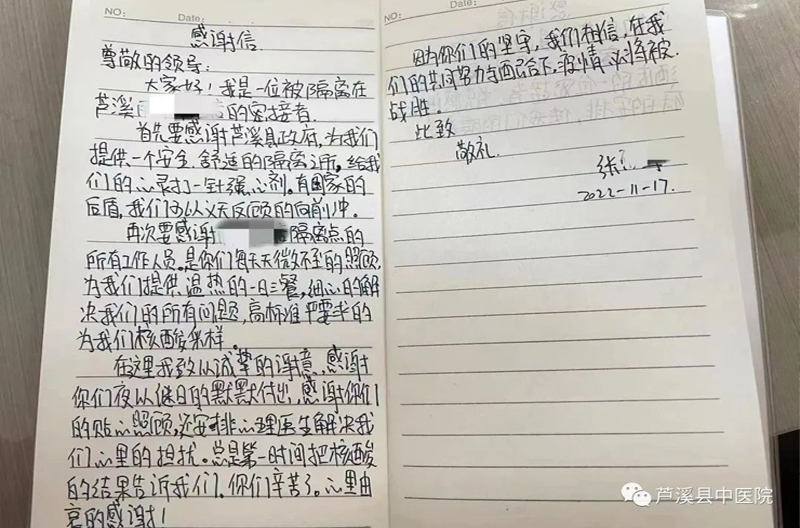 NO:
Date:
感谢信
尊敬的领导:
大家好!我是一位被隔离在
芦溪 的密接者.
首先要感谢芦溪县政府,为我们
提供一个安全、舒适的隔离之所,给我
们的心灵打一针强心剂.有国家的
后盾,我们可以义无反顾的向前冲.
再次要感谢 隔离点的
所有工作人员.是你们每天无微不至的照顾,
为我们提供温热的一日三餐,细心的解
决我们的所有问题,高标准严要求的
为我们核酸采样.
在这里我致以诚挚的谢意,感谢
你们夜以继日的默默付出,感谢你们
的贴心照顾,还安排心理医生解决我
们心里的担扰。总是第一时间把核酸
的结果告诉我们.你们辛苦了。心里由
衷的感谢!
NO:
Date:
因为你们的坚守,我们相信,在我
们的共同努力与配合下,疫情必将被
战胜.
此致
敬礼.
张
2022-11-17.
芦溪县中医院